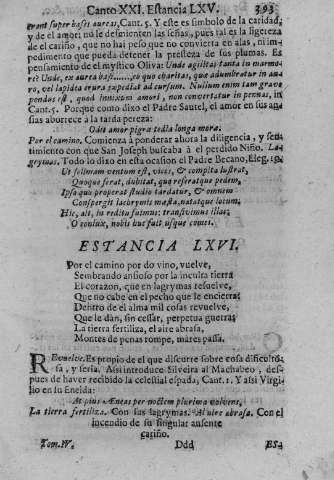 Canto XXI. Estancia LXV. 393
erant super bases aureas, Cant. 5. Y este es simbolo de la caridad,
y de el amor: no le desmienten las señas, pues tal es la ligereza
de el cariño, que no hai peso que no convierta en alas, ni im-
pedimento que pueda detener la presteza de sus plumas. Es
pensamiento de el mystico Oliva: Unde agilitas tanta in marmo-
re? Unde, ex aurea base......, eo quo charitas, quæ adumbratur in au-
ro, vel lapidea crura expediat ad cursum. Nullum enim tam grave
pondus est, quod innixum amori, non convertatur in pennas, in
Cant. 5. Porque como dixo el Padre Sautel, el amor en sus an-
sias aborrece à la tarda pereza:
Odit amor pigra tædia longa mora.
Por el camino. Comienza à ponderar ahora la diligencia, y sen-
timiento con que San Joseph buscaba à el perdido Niño. La-
grymas. Todo lo dixo en esta ocasion el Padre Becano, Eleg. 19.
Ut solimam ventum est, vicos, & compita lustrat,
Quoque ferat, dubitat, quo referatque pedem,
Ipsa quo properat studio tardatur, & omnem
Conspergit lacbrymis mæsta, natatque locum,
Hic, ait, in reditu fuimus: transivimus illac;
O conlux, nobis huc fuit usque comes.
ESTANCIA LXVI.
Por el camino por do vino, vuelve,
Sembrando ansioso por la inculta tierra
El corazon, que en lagrymas resuelve,
Que no cabe en el pecho que le encierra;
Dentro de el alma mil cosas revuelve,
Que le dàn, sin cessar, perpetua guerra;
La tierra fertiliza, el aire abrasa,
Montes de penas rompe, mares passa.
REvuelve. Es propio de el que discurre sobre cosa dificulto-
sa, y seria. Assi introduce Silveira al Machabeo, des-
pues de haver recibido la celestial espada, Cant. 1. Y assi Virgi-
lio en su Eneida:
At pius Æneas per noctem plurima volvens,
La tierra fertiliza. Con sus lagrymas. Al aire abrasa. Con el
incendio de su singular ausente
cariño.
Tom. IV. Ddd ES-